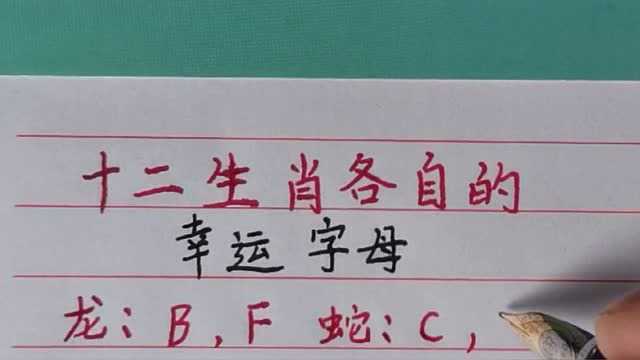 十二生肖各自的
幸运字母
龙：B，F 蛇：C，